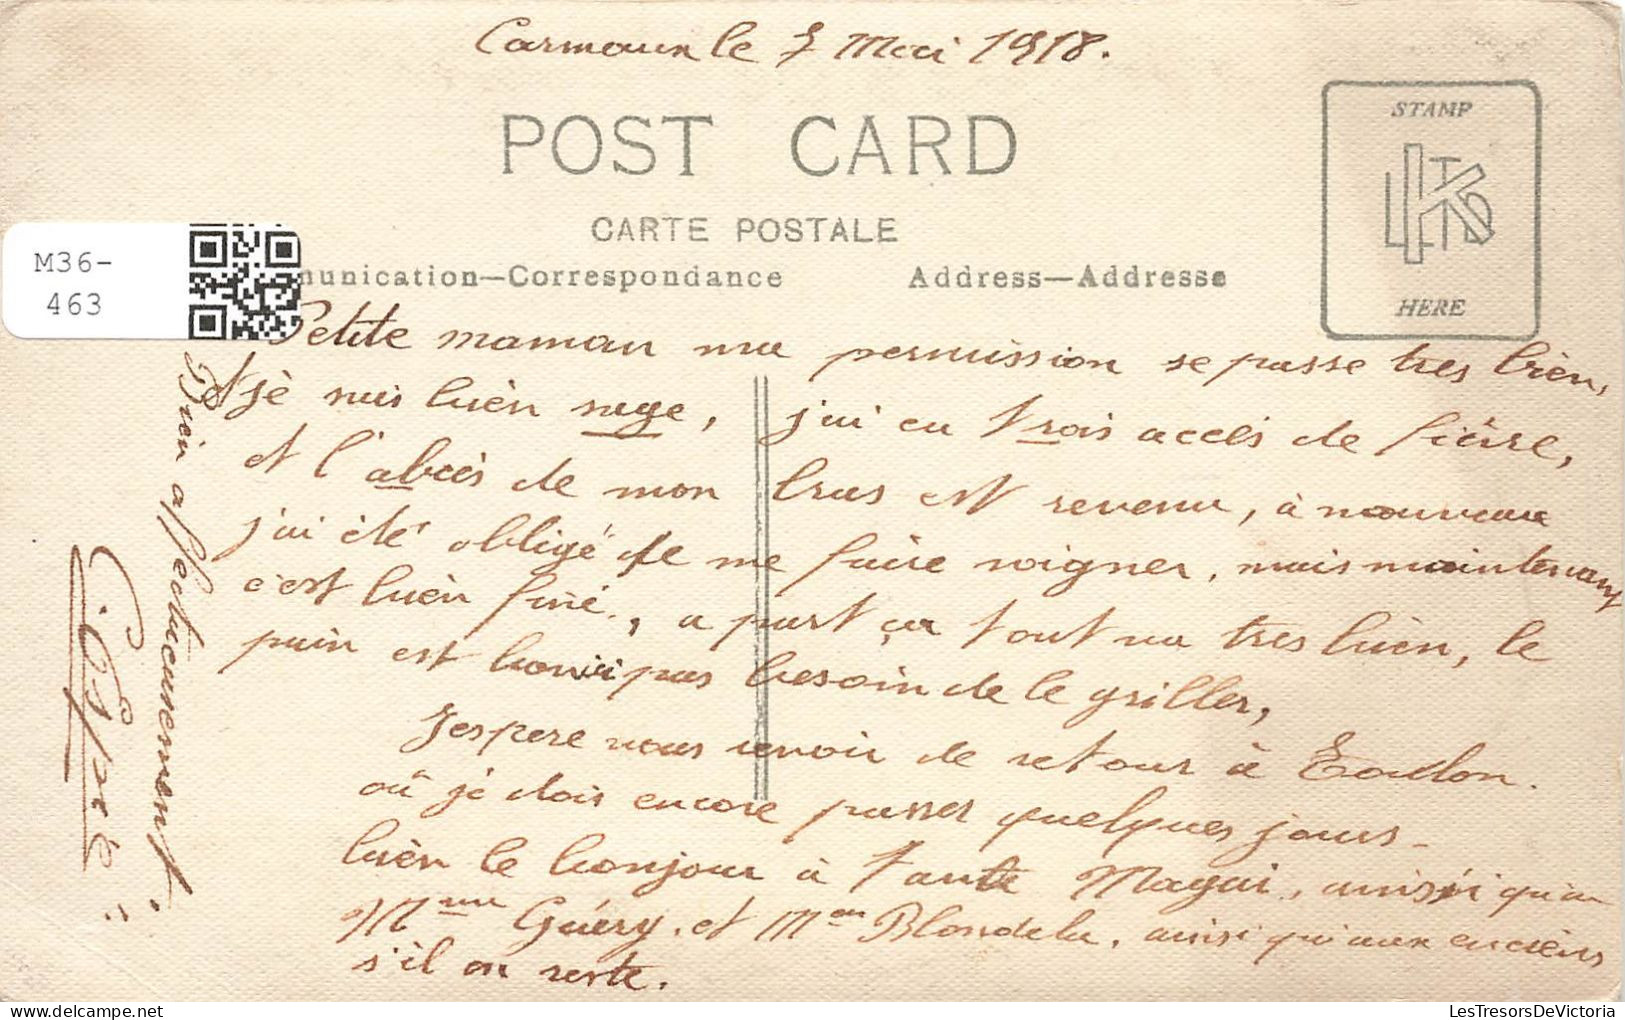 Carmaux le 7 Mai 1918.
POST CARD
CARTE POSTALE
STAMP
HERE
M36-
463
munication—Correspondance
Address—Addresse
Petite maman ma permission se passe tres bien,
je suis bien sage, j'ai eu trois accès de fièvre,
et l'abcès de mon bras est revenu, à nouveau
j'ai été obligé de me faire soigner, mais maintenant
c'est bien fini, a part ça tout va tres bien, le
pain est bon ici pas besoin de le griller,
J'espere vous revoir de retour à Toulon.
où je dois encore passer quelques jours.
bien le bonjour à Tante Magui, ainsi qu'a
Mme Guéry, et Mme Blondela, ainsi qu'aux anciens
s'il en reste.
Bien affectueusement.
LesTresorsDeVictoria